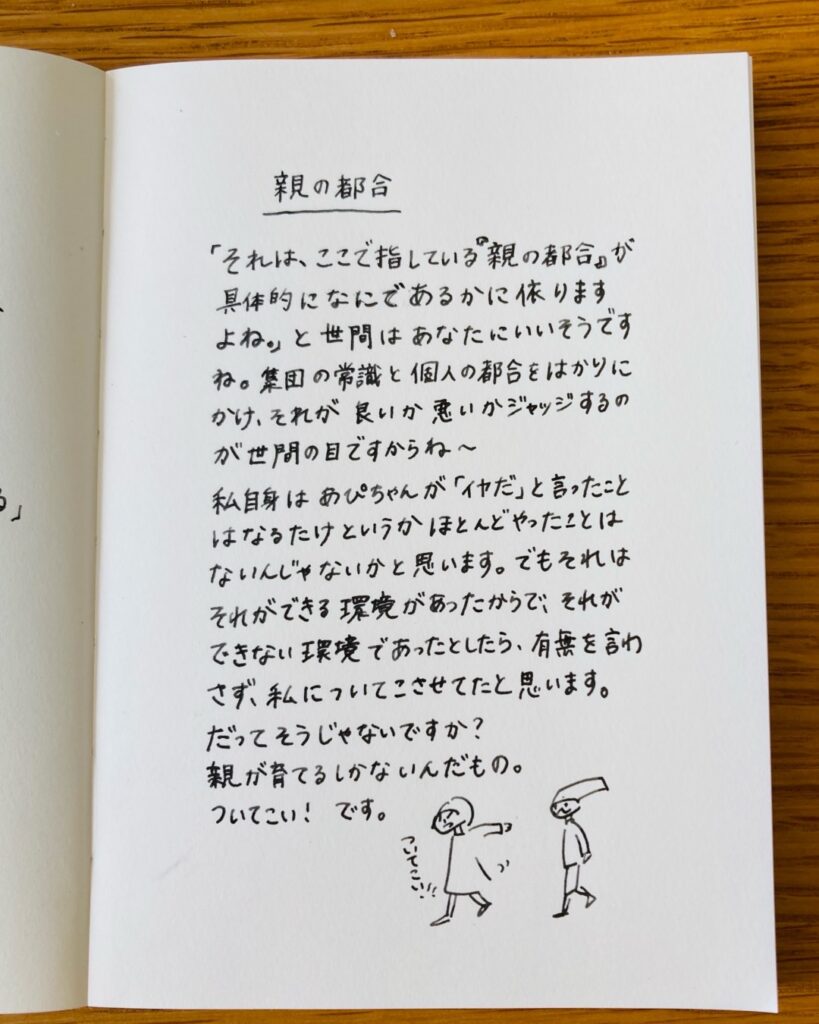 親の都合
「それは、ここで指している『親の都合』が
具体的になにであるかに依ります
よね。」と世間はあなたにいいそうです
ね。集団の常識と個人の都合をはかりに
かけ、それが良いか悪いかジャッジするの
が世間の目ですからね〜
私自身はあぴちゃんが「イヤだ」と言ったこと
はなるたけというかほとんどやったことは
ないんじゃないかと思います。でもそれは
それができる環境があったからで、それが
できない環境であったとしたら、有無を言わ
さず、私についてこさせてたと思います。
だってそうじゃないですか?
親が育てるしかないんだもの。
ついてこい! です。
ついてこい!!
る」